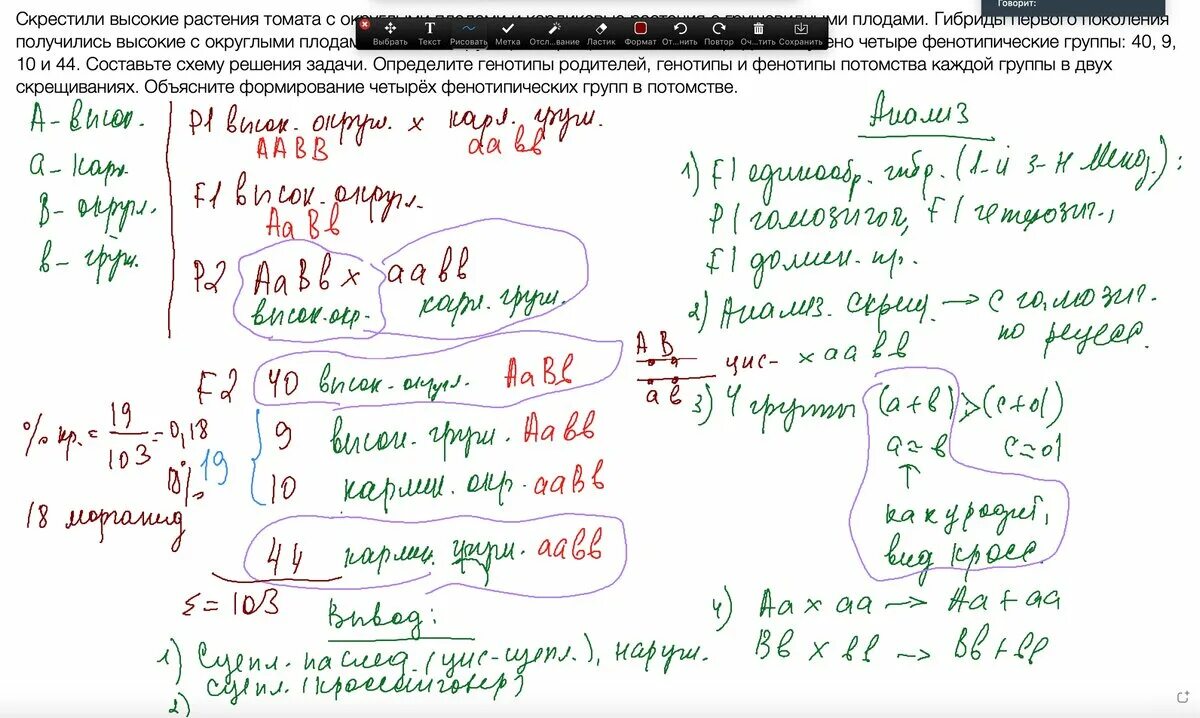 Говорит:
Скрестили высокие растения томата с ок
ми плодами. Гибриды первого поколения
получились высокие с округлыми плодам
ено четыре фенотипические группы: 40, 9,
10 и 44. Составьте схему решения задачи. Определите генотипы родителей, генотипы и фенотипы потомства каждой группы в двух
скрещиваниях. Объясните формирование четырёх фенотипических групп в потомстве.
Выбрать Текст Рисовать Метка Отсл...вание Ластик Формат От...нить Повтор Оч...тить Сохранить
А - высок.
а - карл.
В - округл.
в - груш.
P1 высок. округл. x карл. груш.
AABB aaвв
F1 высок. округл.
AaBв
P2 AaBв x aaвв
высок. окр. карл. груш.
F2 40 высок. округл. AaBв
9 высок. груш. Aaвв
10 карлик. окр. aaBв
44 карлик. груш. aaвв
Σ = 103
% кр. = 19/103 = 0,18
18%
19
18 морганид
Вывод:
1) Сцепл. наслед. (цис-сцепл.), наруш.
сцепл. (кроссинговер)
2)
Анализ
1) F1 единообр. гибр. (1-й з-н Менд.):
P1 гомозигот, F1 гетерозиг.,
F1 домин. пр.
2) Анализ. скрещ. → с гомозиг.
по рецесс.
A B
а в
цис- x aaвв
3) 4 группы (a+в) > (c+d)
a = в c = d
↑
как у родит.,
без кросс.
4) Aa x aa → Aa + aa
Bв x вв → Bв + вв